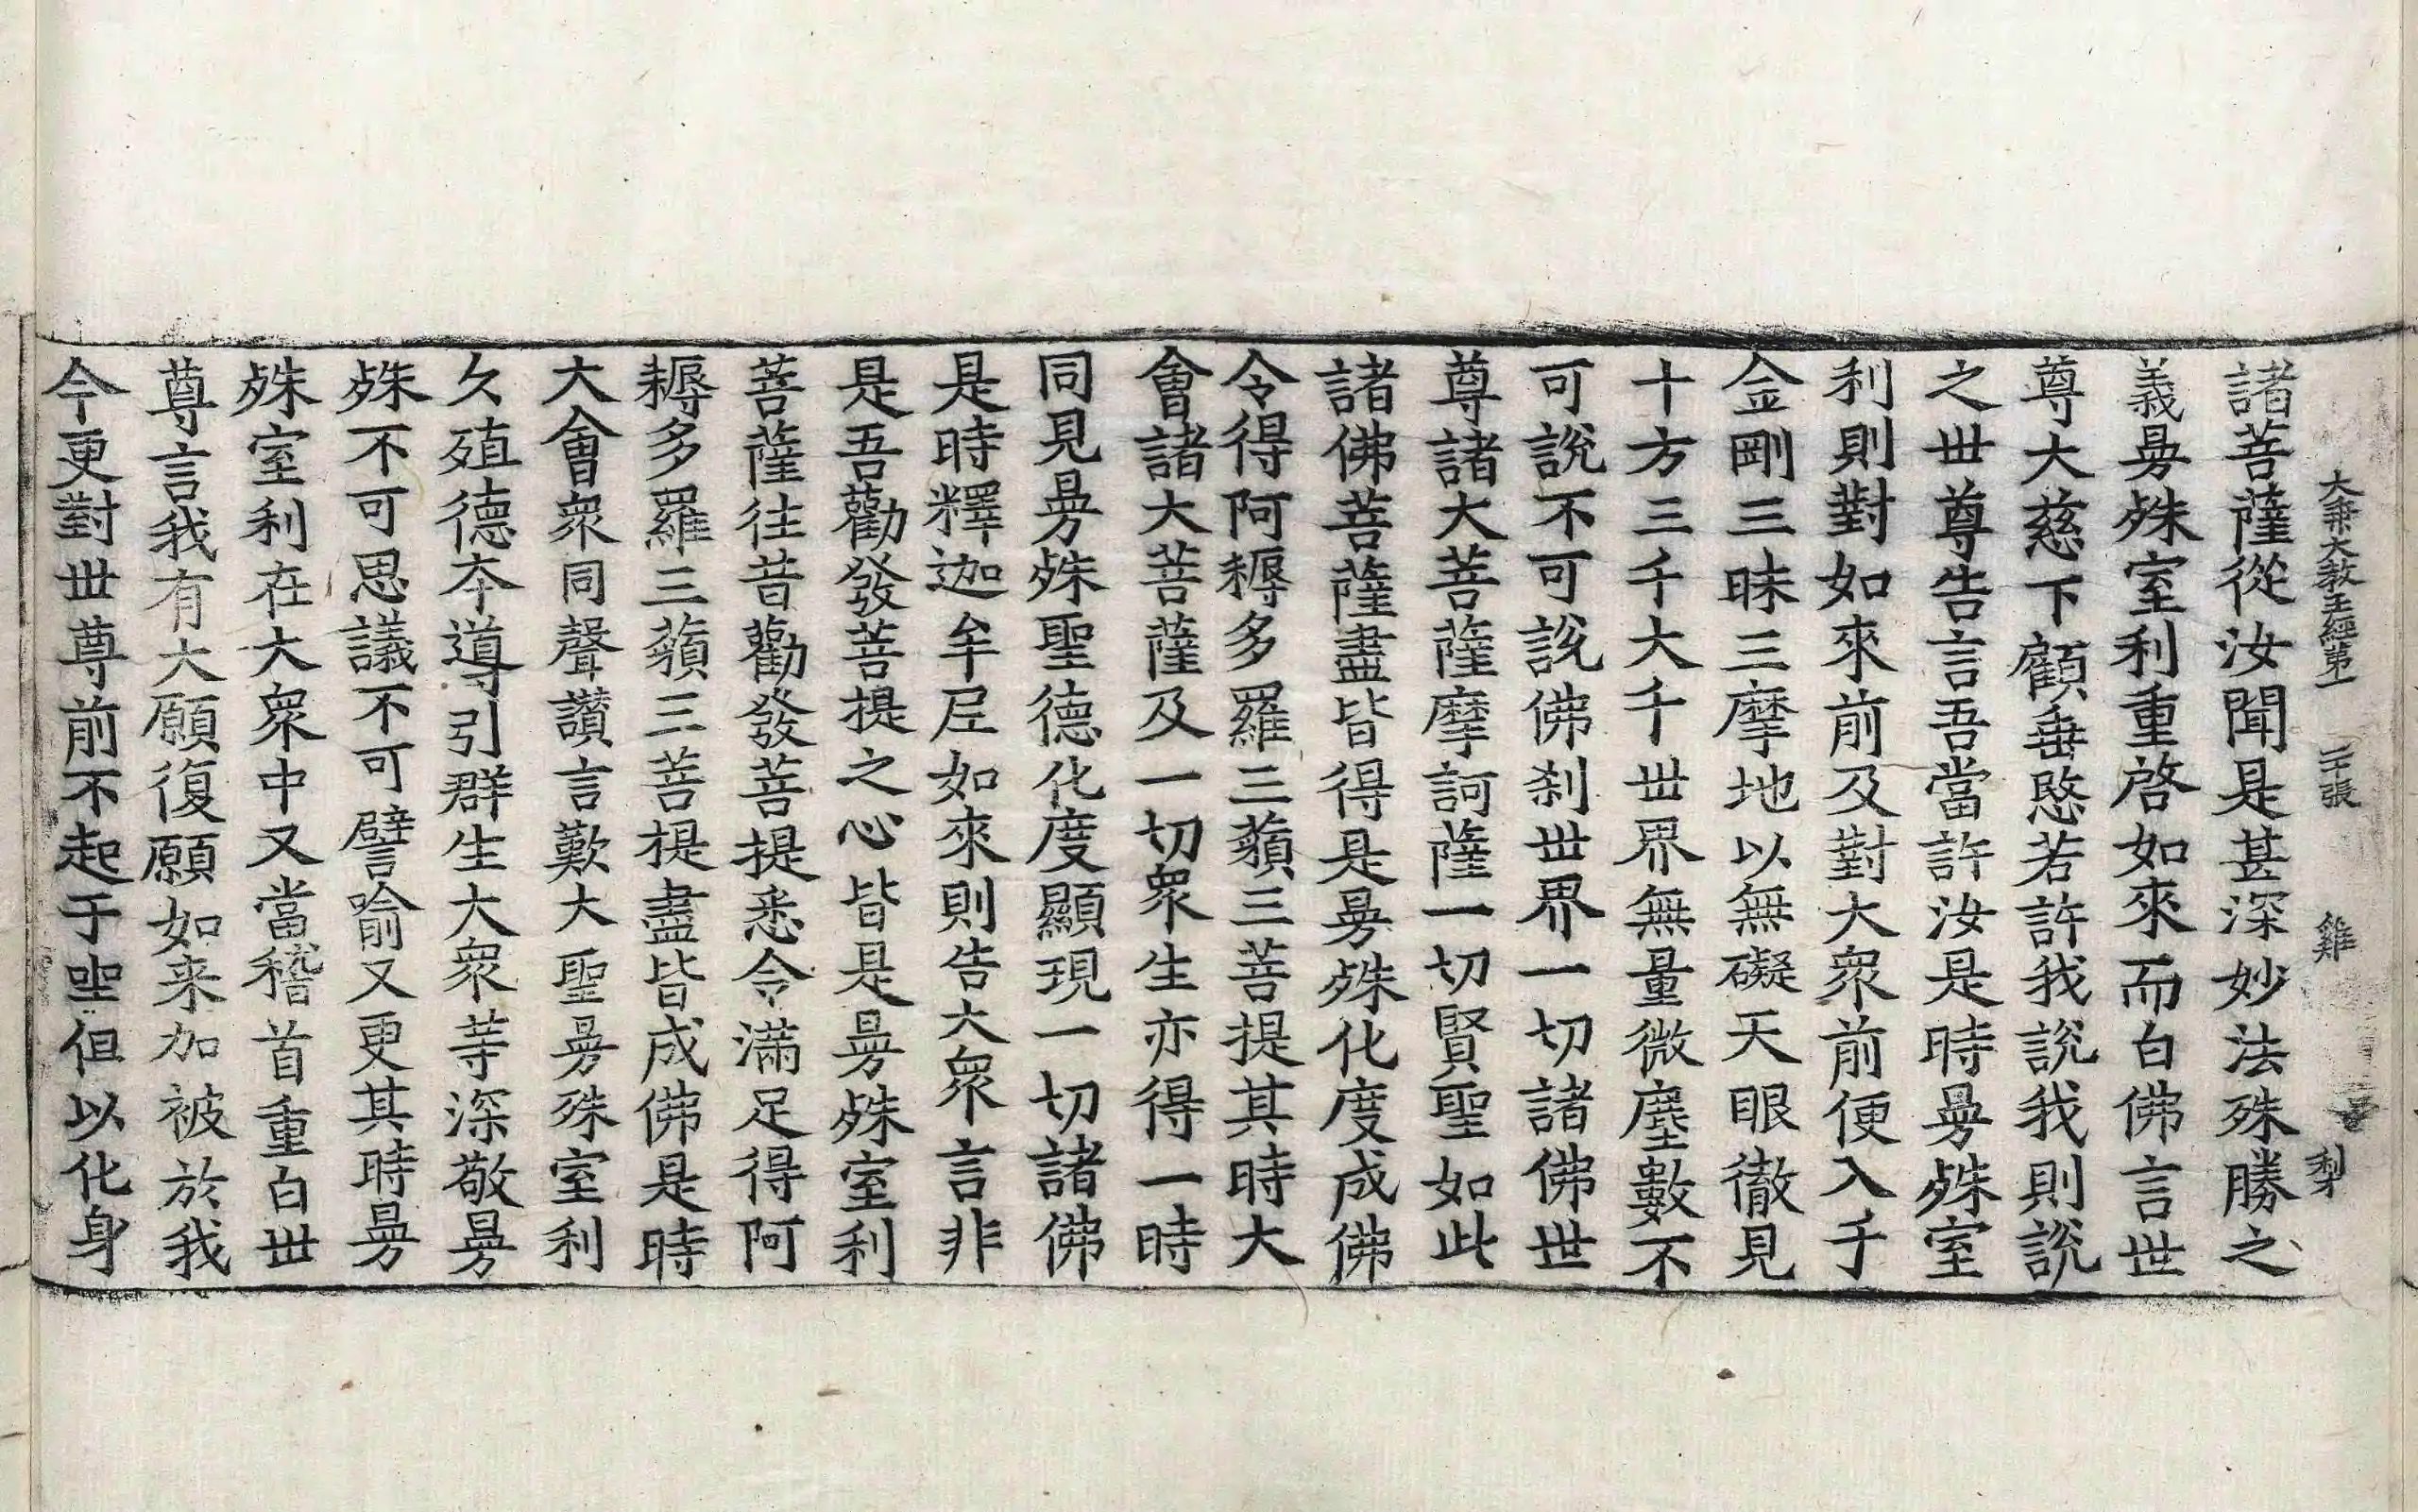 大乘大教王經第一 二十張 雞 梨
諸菩薩從汝聞是甚深妙法殊勝之
義曼殊室利重啓如來而白佛言世
尊大慈下顧垂愍若許我說我則說
之世尊告言吾當許汝是時曼殊室
利則對如來前及對大衆前便入于
金剛三昧三摩地以無礙天眼徹見
十方三千大千世界無量微塵數不
可說不可說佛刹世界一切諸佛世
尊諸大菩薩摩訶薩一切賢聖如此
諸佛菩薩盡皆得是曼殊化度成佛
令得阿耨多羅三藐三菩提其時大
會諸大菩薩及一切衆生亦得一時
同見曼殊聖德化度顯現一切諸佛
是時釋迦牟尼如來則告大衆言非
是吾勸發菩提之心皆是曼殊室利
菩薩往昔勸發菩提悉令滿足得阿
耨多羅三藐三菩提盡皆成佛是時
大會衆同聲讃言歎大聖曼殊室利
久殖德本導引群生大衆等深敬曼
殊不可思議不可譬喻又更其時曼
殊室利在大衆中又當稽首重白世
尊言我有大願復願如来加被於我
今更對世尊前不起于坐但以化身